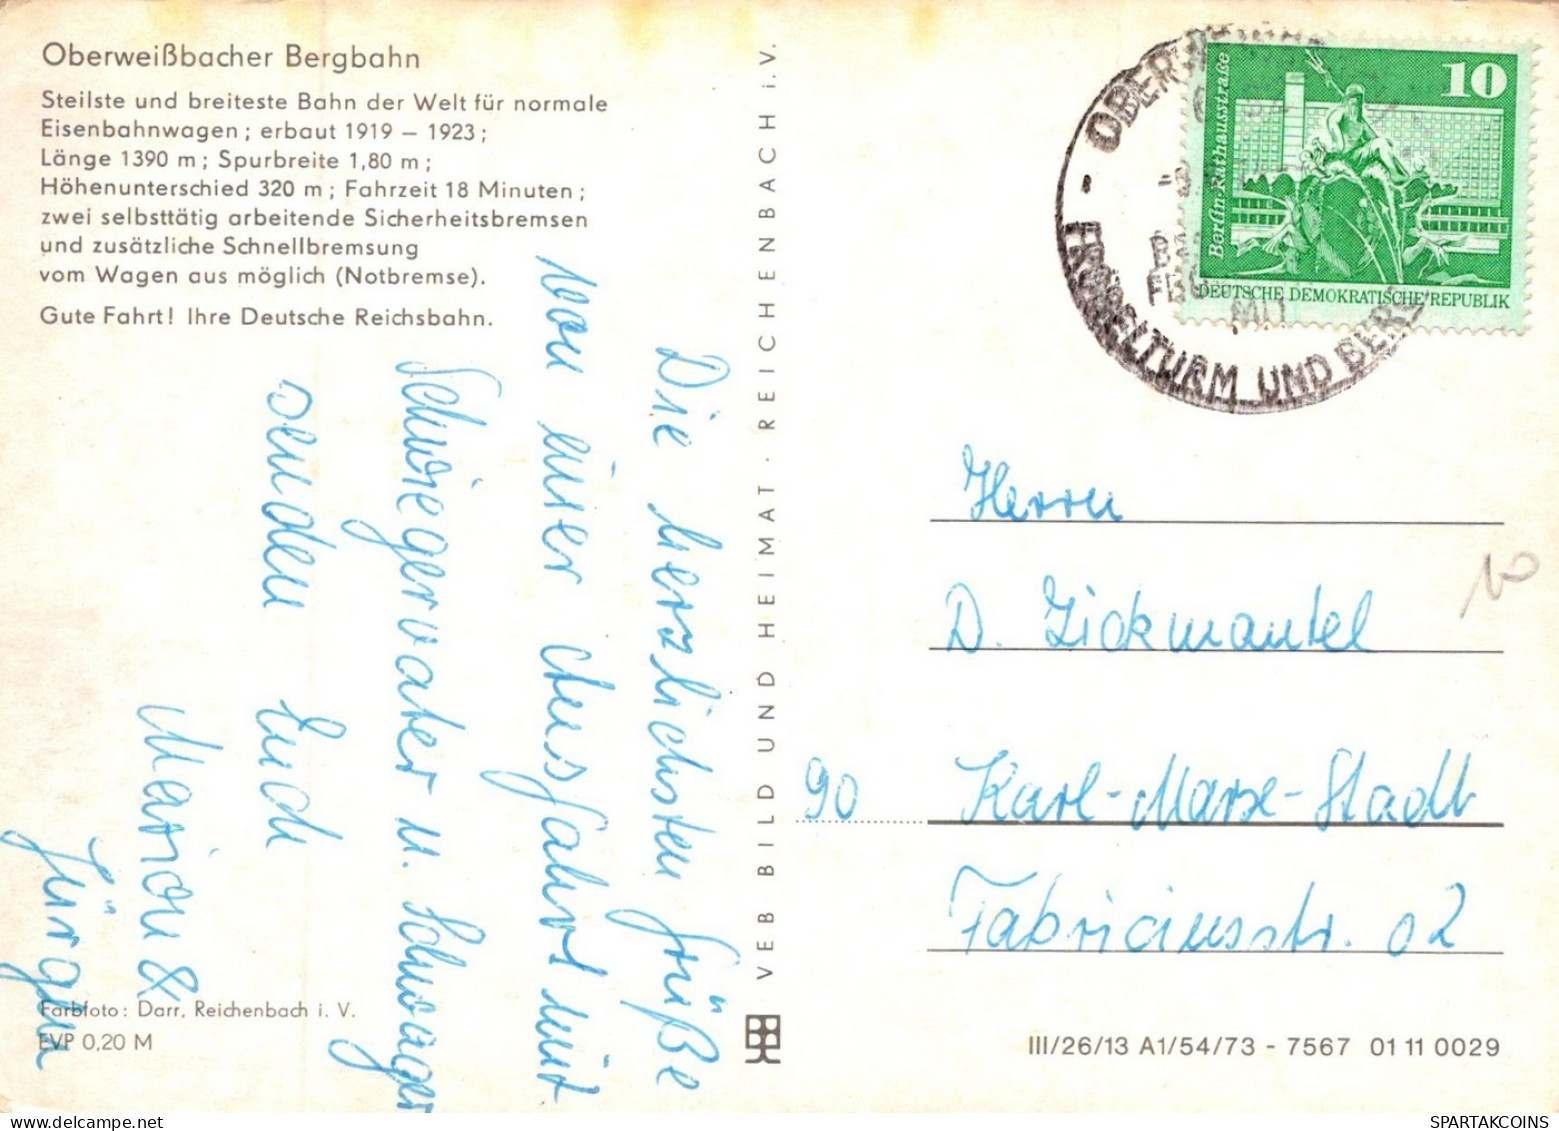 Oberweißbacher Bergbahn
Steilste und breiteste Bahn der Welt für normale
Eisenbahnwagen; erbaut 1919 – 1923;
Länge 1390 m; Spurbreite 1,80 m;
Höhenunterschied 320 m; Fahrzeit 18 Minuten;
zwei selbsttätig arbeitende Sicherheitsbremsen
und zusätzliche Schnellbremsung
vom Wagen aus möglich (Notbremse).
Gute Fahrt! Ihre Deutsche Reichsbahn.
Die herzlichsten Grüße
von einer Ausfahrt mit
Schwiegervater u. Schwager
senden Euch
Marion &
Jürgen
Farbfoto: Darr, Reichenbach i. V.
EVP 0,20 M
VEB BILD UND HEIMAT · REICHENBACH i. V.
FRÖBELTURM UND
10
Berlin-Rathausstraße
DEUTSCHE DEMOKRATISCHE REPUBLIK
Herrn
D. Zickmantel
10
90 Karl-Marx-Stadt
Fabriciusstr. 02
III/26/13 A1/54/73 - 7567 01 11 0029
SPARTAKCOINS